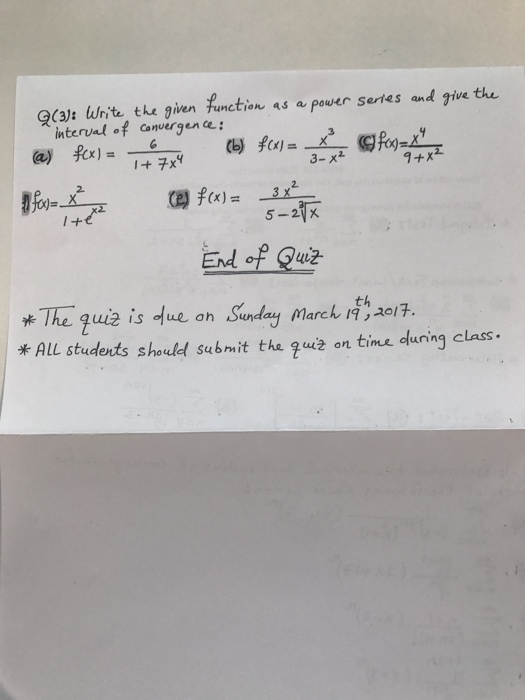 Q(3): Write the given function as a power series and give the
interval of convergence:
(a) f(x) = 6/(1 + 7x⁴) (b) f(x) = x³/(3 - x²) (c) f(x) = x⁴/(9 + x²)
f(x) = x²/(1 + e^x²) (e) f(x) = 3x²/(5 - 2∛x)
End of Quiz
* The quiz is due on Sunday March 19th, 2017.
* ALL students should submit the quiz on time during class.